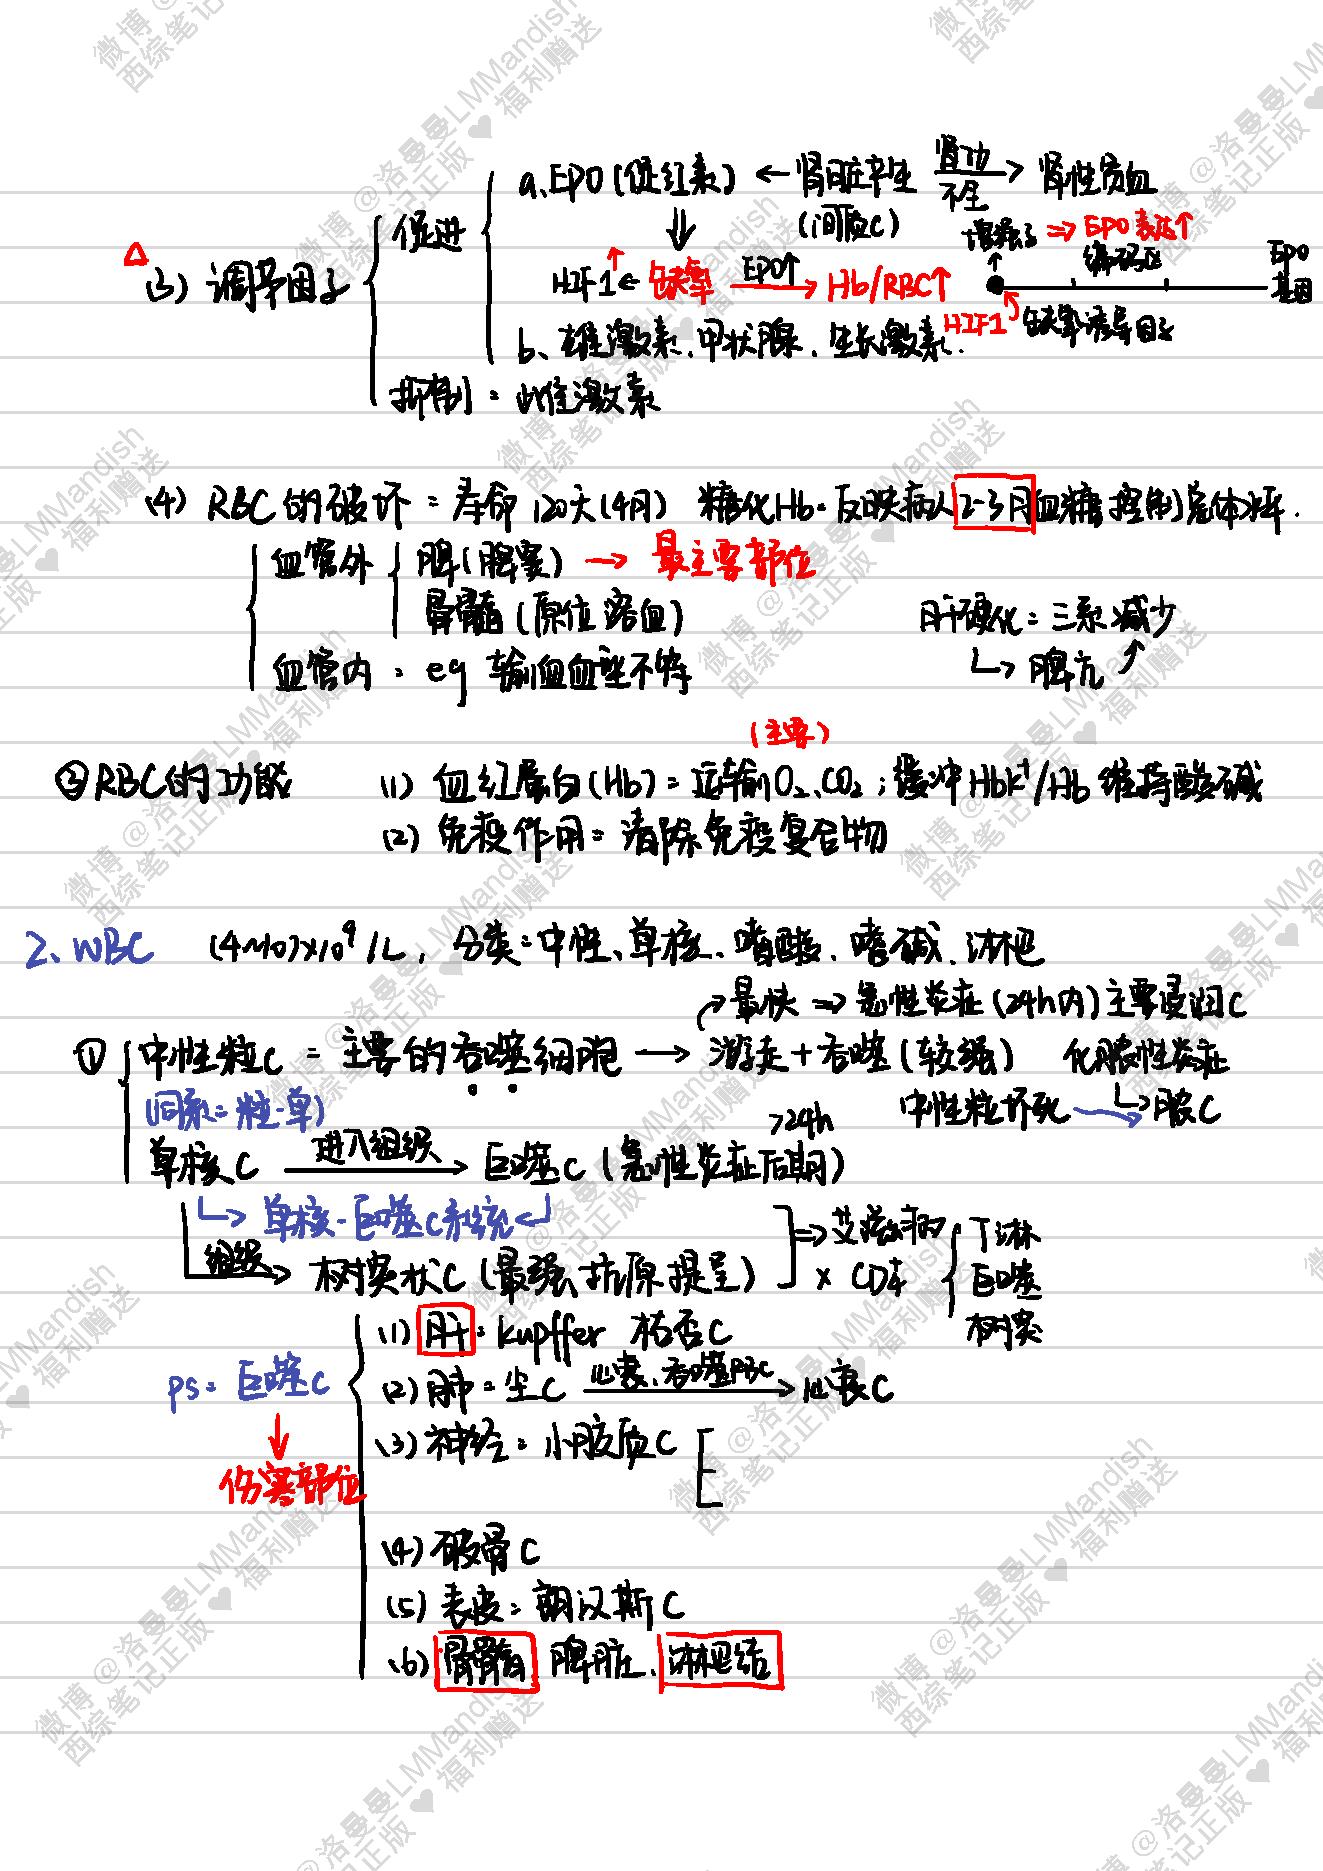 a. EPO (促红素) ← 肾脏产生 肾功不全 → 肾性贫血
(间质C)
增强子 ⇒ EPO表达↑
促进
△ (3) 调节因子
HIF1↑ ← 缺氧 EPO↑ → Hb/RBC↑
编码区 EPO基因
HIF1 缺氧诱导因子
b. 雄激素、甲状腺、生长激素.
抑制: 雌激素
(4) RBC的破坏: 寿命120天(4月) 糖化Hb: 反映病人2-3月血糖控制总体水平.
血管外 脾(脾窦) → 最主要部位
骨髓(原位溶血) 肝硬化: 三系减少
血管内: eg 输血血型不符 ↳ 脾亢
(主要)
② RBC的功能 (1) 血红蛋白(Hb): 运输O₂、CO₂; 缓冲HbK⁺/Hb 维持酸碱
(2) 免疫作用: 清除免疫复合物
2、WBC (4~10)×10⁹/L, 分类: 中性、单核、嗜酸、嗜碱、淋巴
最快 ⇒ 急性炎症(24h内)主要浸润C
① 中性粒C: 主要的吞噬细胞 → 游走+吞噬(较强) 化脓性炎症
(同系: 粒-单) 中性粒坏死 → 脓C
>24h
单核C 进入组织 → 巨噬C (急性炎症后期)
↳ 单核-巨噬C系统
组织 → 树突状C (最强抗原提呈) ⇒ 艾滋病 × CD4 T淋 巨噬 树突
(1) 肝: kupffer 枯否C
ps: 巨噬C (2) 肺: 尘C 心衰、吞噬RBC → 心衰C
(3) 神经: 小胶质C
↓
伤寒部位
(4) 破骨C
(5) 表皮: 朗汉斯C
(6) 骨髓 脾脏、淋巴结
微博@洛曼曼LMMandish
西综笔记正版♥福利赠送